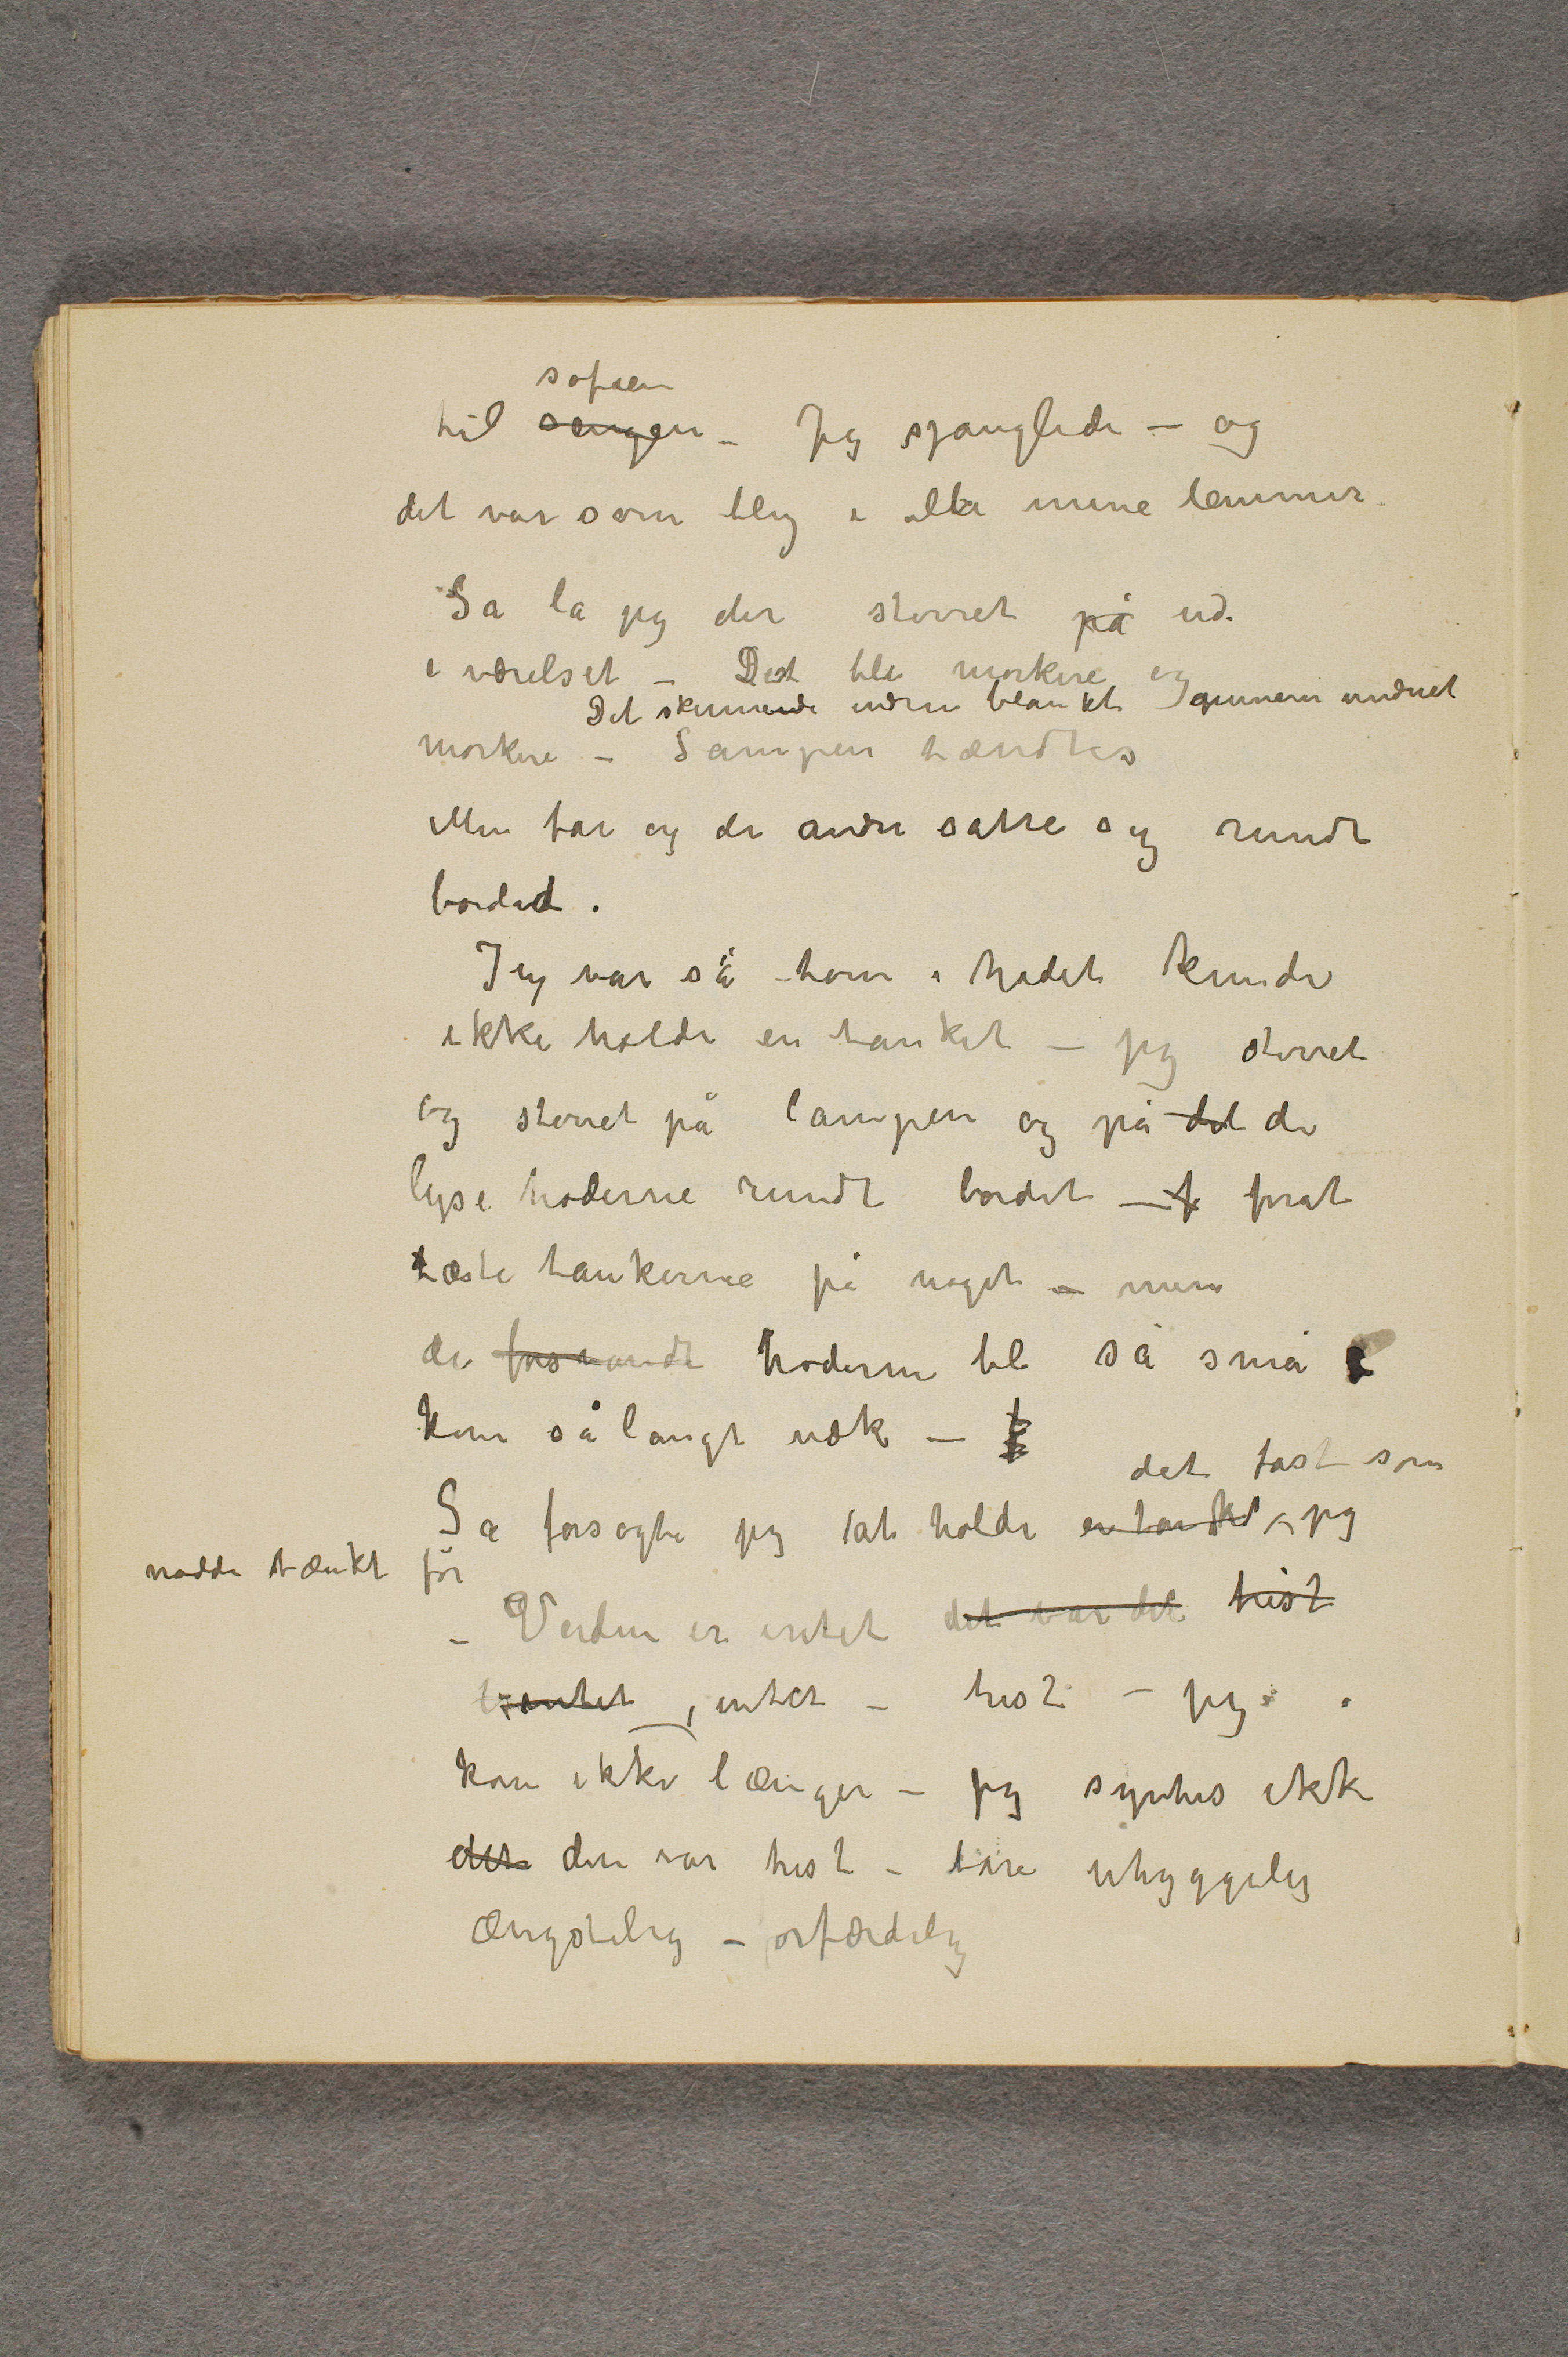 sofaen
til sengen – Jeg sjanglede – og
det var som bly i alle mine lemmer.
Så lå jeg der stirret på ud
i værelset – Det ble mørkere og
Det skinnende blankt gjennem vinduet
mørkere – Lampen tændtes
Min far og de andre satte sig rundt
bordet.
Jeg var så tom i hodet kunde
ikke holde en tanke – jeg stirret
og stirret på lampen og på det de
lyse hoderne rundt bordet – f forat
fæste tankerne på noget – men
de forsvandt hoderne ble så små
kom så langt væk –
det fast som
Så forsøgte jeg at holde en tanke jeg
nødde tænkt før
– Verden er intet det var det trist
intet – trist – jeg
kom ikke længer – jeg syntes ikke
det den var trist – bare uhyggelig
Ængstelig – orfærdelig